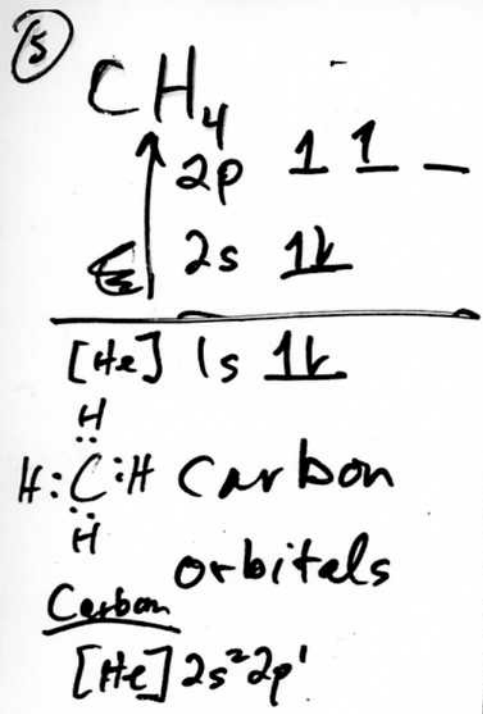 5
CH₄
2p 1 1 _
E 2s 1↓
[He] 1s 1↓
H
H:C:H Carbon
H
orbitals
Carbon
[He] 2s²2p¹